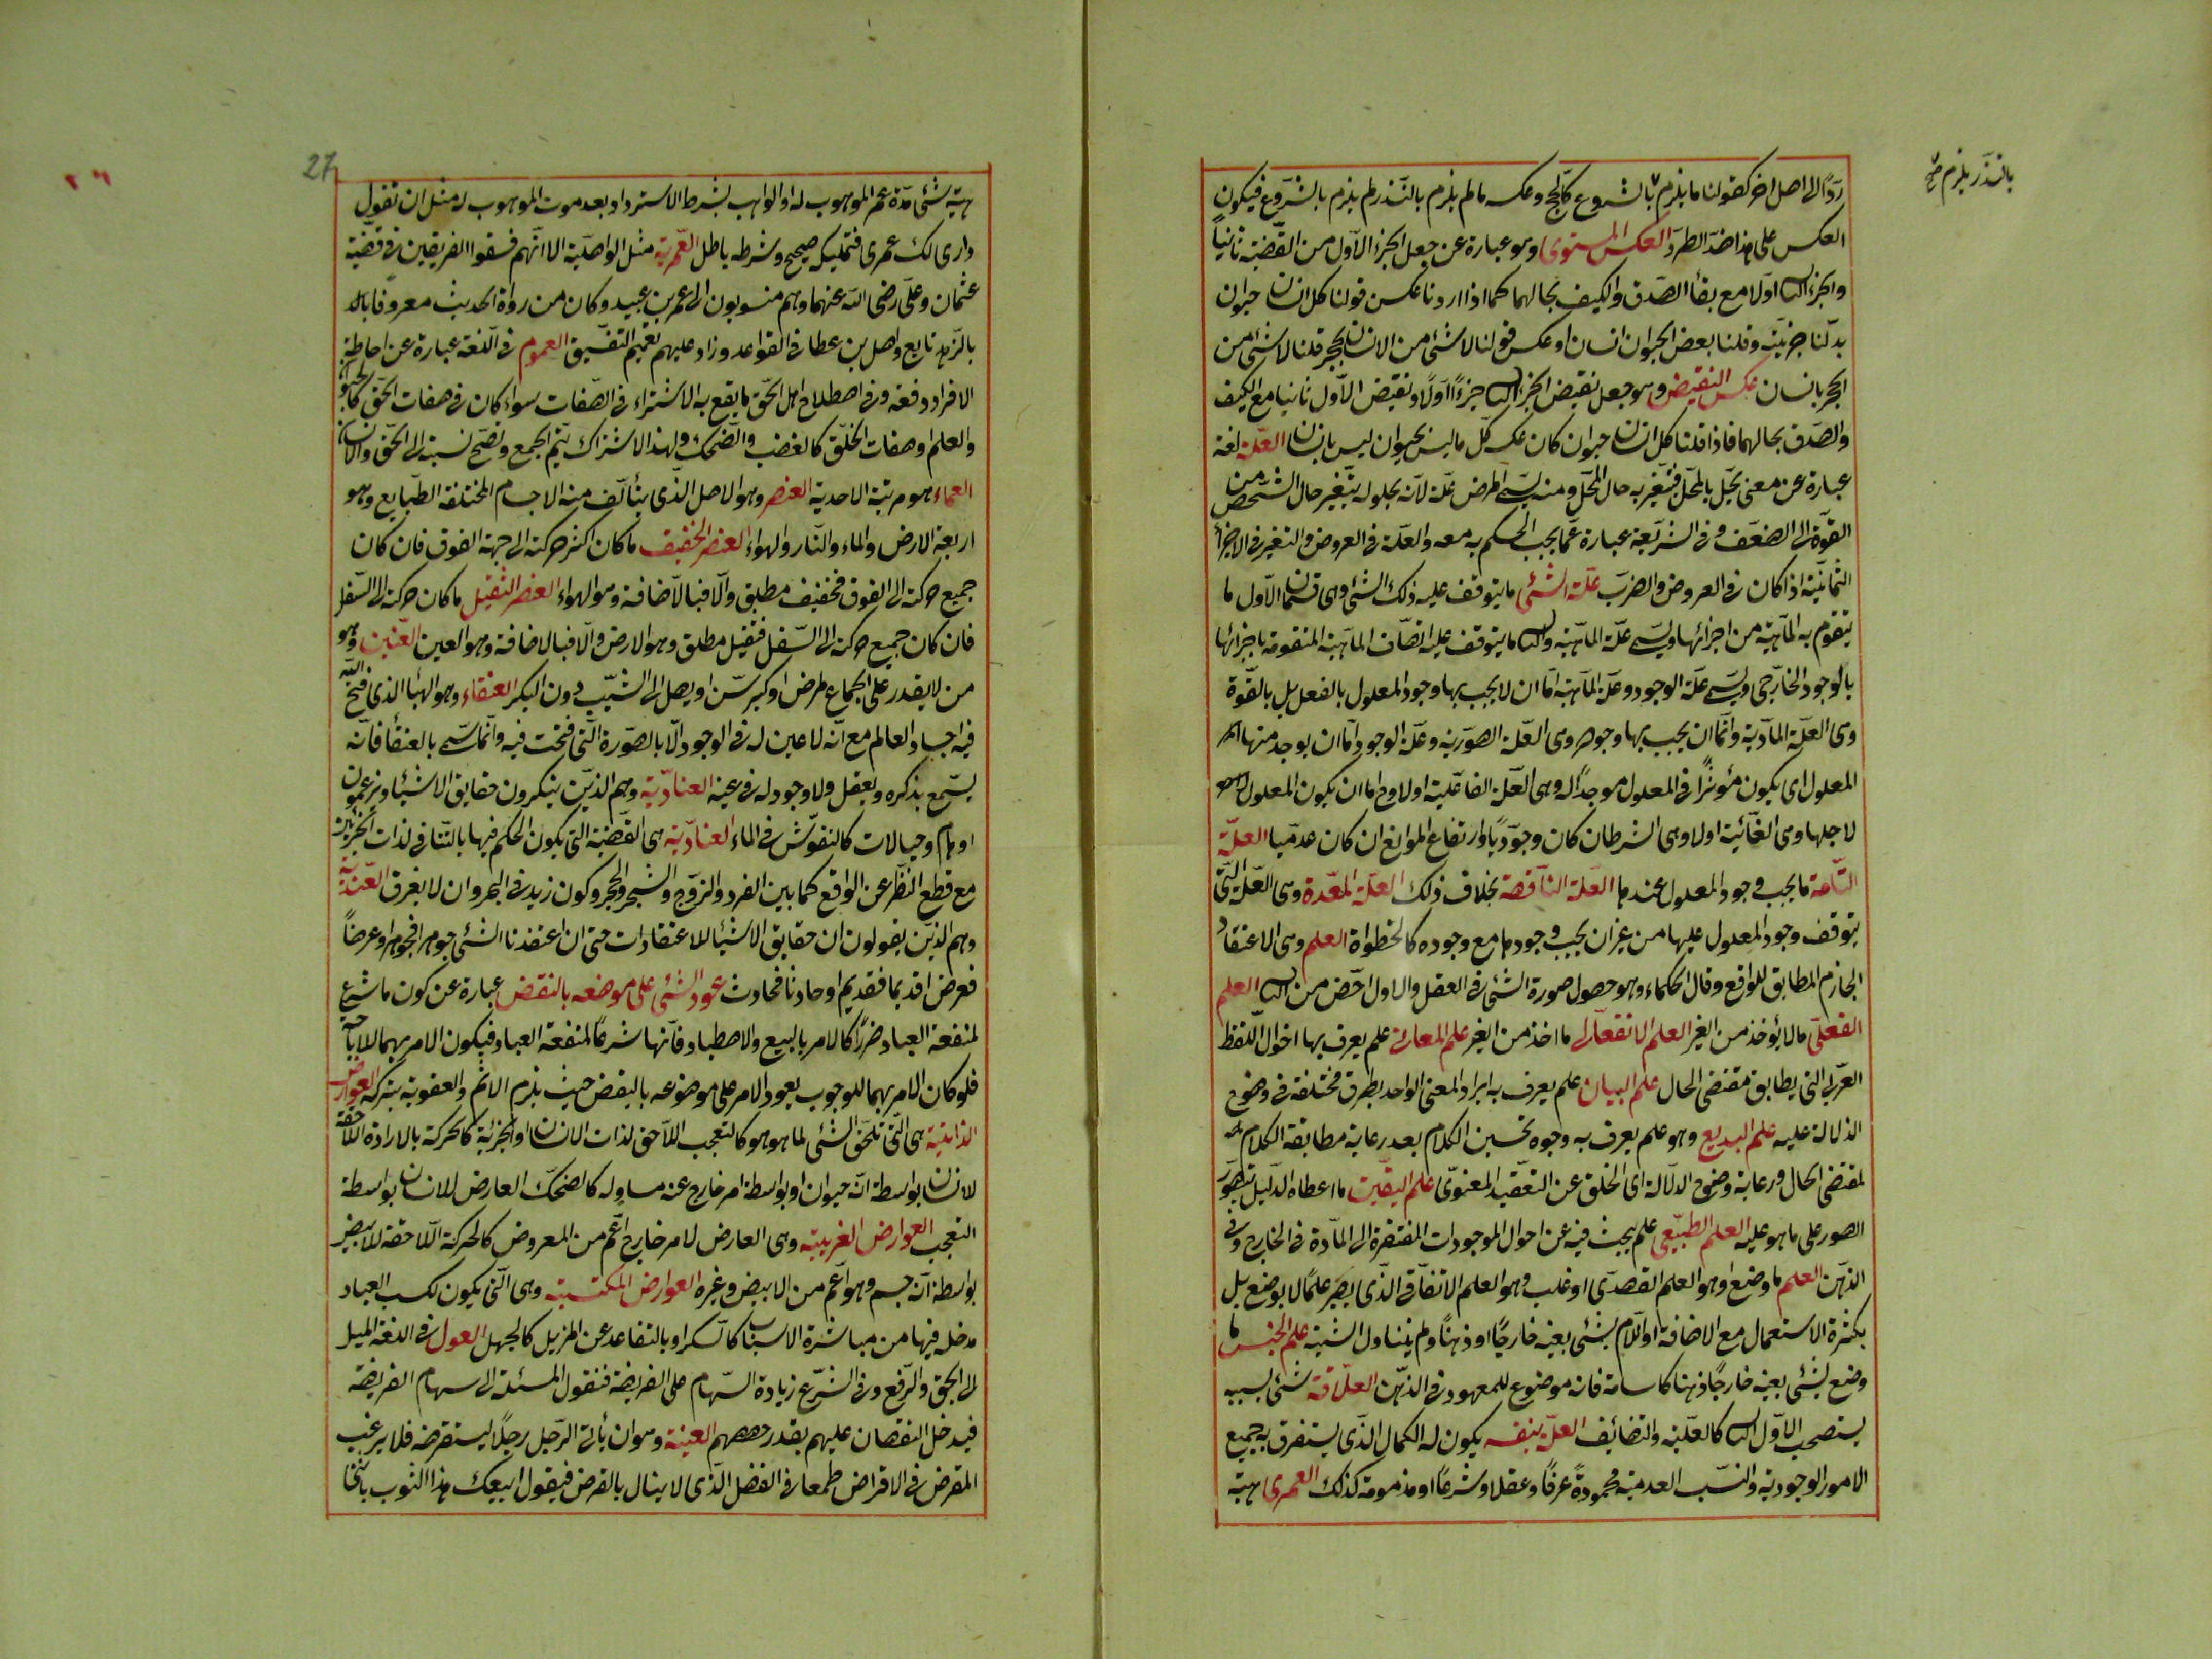 بالنذر يلزم صح
ردّا الى اصل اخر كقولنا ما يلزم بالشروع كالحج وعكسه ما لم يلزم بالنذر لم يلزم بالشروع فيكون
العكس على هذا ضد الطرد العكس المستوى وهو عبارة عن جعل الجزء الاول من القضية ثانياً
والجزء الثاني اولا مع بقاء الصدق والكيف بحالهما كما اذا اردنا عكس قولنا كل انسان حيوان
بدلنا جزئيته وقلنا بعض الحيوان انسان او عكس قولنا لا شئ من الانسان بحجر قلنا لا شئ من
الحجر بانسان عكس النقيض وهو جعل نقيض الجزء الثاني جزءاً اولاً ونقيض الاول ثانيا مع الكيف
والصدق بحالهما فاذا قلنا كل انسان حيوان كان عكسه كل ما ليس بحيوان ليس بانسان العلة لغة
عبارة عن معنى يحل بالمحل فيتغير به حال المحل ومنه يسمى المرض علة لانه بحلوله يتغير حال الشخص من
القوة الى الضعف وفى الشريعة عبارة عما يجب الحكم به معه والعلة فى العروض والتغير فى الاجزاء
الثمانية اذا كان فى العروض والضرب علة الشئ ما يتوقف عليه ذلك الشئ وهى قسمان الاول ما
يتقوم به الماهية من اجزائها ويسمى علة الماهية والثاني ما يتوقف عليه اتصاف الماهية المتقومة باجزائها
بالوجود الخارجى ويسمى علة الوجود وعلة الماهية اما ان لا يجب بها وجود المعلول بالفعل بل بالقوة
وهى العلة المادية واما ان يجب بها وجوده وهى العلة الصورية وعلة الوجود اما ان يوجد منها
المعلول اى يكون مؤثرًا فى المعلول موجدًا له وهى العلة الفاعلية اولا وح اما ان يكون المعلول
لاجلها وهى الغائية اولا وهى الشرط ان كان وجوديًا وارتفاع الموانع ان كان عدميا العلة
التامة ما يجب وجود المعلول عندها العلة الناقصة بخلاف ذلك العلة المعدة وهى العلة التى
يتوقف وجود المعلول عليها من غير ان يجب وجودها مع وجوده كالخطوات العلم وهى الاعتقاد
الجازم المطابق للواقع وقال الحكماء وهو حصول صورة الشئ فى العقل والاول اخص من الثاني العلم
الفعلى ما لا يؤخذ من الغير العلم الانفعالى ما اخذ من الغير علم المعانى علم يعرف بها احوال اللفظ
العربى التى يطابق مقتضى الحال علم البيان علم يعرف به ايراد المعنى الواحد بطرق مختلفة فى وضوح
الدلالة عليه علم البديع وهو علم يعرف به وجوه تحسين الكلام بعد رعاية مطابقة الكلام
لمقتضى الحال ورعاية وضوح الدلالة اى الخلو عن التعقيد المعنوى علم اليقين ما اعطاه الدليل بتصور
الصور على ما هو عليه العلم الطبيعى علم يبحث فيه عن احوال الموجودات المفتقرة الى المادة فى الخارج وفى
الذهن العلم ما وضع وهو العلم القصدى او غلب وهو العلم الاتفاقى الذى يصير علمًا لا بوضع بل
بكثرة الاستعمال مع الاضافة او اللام بشئ بعينه خارجًا او ذهنًا ولم يتناول الشبه علم الجنس ما
وضع بشئ بعينه خارجًا ذهنا كاسامة فانه موضوع للمعهود فى الذهن العلاقة شئ بسببه
يستصحب الاول الثاني كالعلية والتضايف العلى بنفسه يكون له الكمال الذى يستغرق به جميع
الامور الوجودية والنسب العدمية محمودة عرفًا وعقلا وشرعًا او مذمومة كذلك العمرى هبة
27
٢٦
هبة شئ مدة عمر الموهوب له او الواهب بشرط الاسترداد بعد موت الموهوب له مثل ان تقول
دارى لك عمرى فتمليكه صحيح وشرطه باطل العمرية مثل الواصلية الا انهم فسقوا الفريقين فى قضية
عثمان وعلى رضى الله عنهما وهم منسوبون الى عمر بن عبيد وكان من رواة الحديث معروفا
بالزهد تابع واصل بن عطا فى القواعد وزاد عليهم تعميم التفسيق العموم فى اللغة عبارة عن احاطة
الافراد دفعة وفى اصطلاح اهل الحق ما يقع به الاشتراء فى الصفات سواء كان فى صفات الحق كالحيوة
والعلم او صفات الخلق كالغضب والضحك ولهذا الاشتراك يتم الجمع وتصح نسبته الى الحق والانسان
العماء هو مرتبة الاحدية العنصر وهو الاصل الذى يتألف منه الاجسام المختلفة الطبايع وهو
اربعة الارض والماء والنار والهواء العنصر الخفيف ما كان اكثر حركته الى جهة الفوق فان كان
جميع حركته الى الفوق فخفيف مطلق والا فبالاضافة وهو الهواء العنصر الثقيل ما كان حركته الى السفل
فان كان جميع حركته الى السفل فثقيل مطلق وهو الارض والا فبالاضافة وهو العين العنين وهو
من لا يقدر على الجماع لمرض او كبر سن او يصل الى الثيب دون البكر العنقاء وهو الهبا الذى فتح الله
فيه اجساد العالم مع انه لا عين له فى الوجود الا بالصورة التى فتحت فيه وانما سمى بالعنقاء فانه
يسمع بذكره ويعقل ولا وجود له فى عينه العنادية وهم الذين ينكرون حقايق الاشياء ويزعمون
اوهام وخيالات كالنقوش فى الماء العنادية هى القضية التى يكون الحكم فيها بالتنافى لذات الجزئين
مع قطع النظر عن الواقع كما بين الفرد والزوج والشجر والحجر وكون زيد فى البحر وان لا يغرق العندية
وهم الذين يقولون ان حقايق الاشياء للاعتقادات حتى ان اعتقدنا الشئ جوهرا فجوهر او عرضاً
فعرض او قديما فقديم او حادثا فحادث عود الشئ على موضعه بالنقض عبارة عن كون ما شرع
لمنفعة العباد ضررًا كالامر بالبيع والاصطياد فانها شرعًا لمنفعة العباد فيكون الامر بهما للاباحة
فلو كان الامر بهما للوجوب يعود الامر على موضوعه بالبغض حيث يلزم الاثم والعقوبة بتركه العوارض
الذاتية هى التى تلحق الشئ لما هو هو كالتعجب اللاحق لذات الانسان او لجزئه كالحركة بالارادة اللاحقة
للانسان بواسطة انه حيوان او بواسطة امر خارج عنه مساو له كالضحك العارض للانسان بواسطة
التعجب العوارض الغريبة وهى العارض لامر خارج اعم من المعروض كالحركة اللاحقة للابيض
بواسطة انه جسم وهو اعم من الابيض وغيره العوارض المكتسبة وهى التى يكون لكسب العباد
مدخل فيها من مباشرة الاسباب كالسكر او بالتقاعد عن المزيل كالجهل العول فى اللغة الميل
الى الحق والرفع وفى الشرع زيادة السهام على الفريضة فتقول المسئلة الى سهام الفريضة
فيدخل النقصان عليهم بقدر حصصهم العينة وهو ان يأتى الرجل رجلاً ليستقرضه فلا يرغب
المقرض فى الاقراض طمعا فى الفضل الذى لا ينال بالقرض فيقول ابيعك هذا الثوب